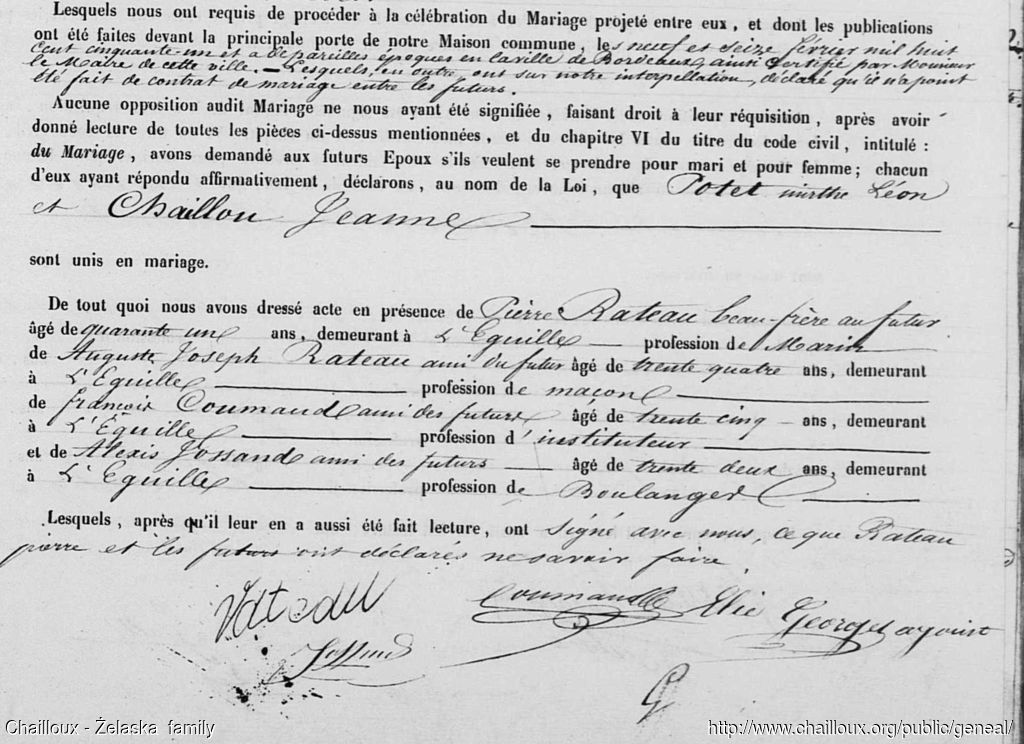 Lesquels nous ont requis de procéder à la célébration du Mariage projeté entre eux, et dont les publications
ont été faites devant la principale porte de notre Maison commune, les neuf et seize février mil huit
cent cinquante-un et a de pareilles époques en la ville de Bordeaux, ainsi certifié par Monsieur
le Maire de cette ville. — Lesquels, en outre, ont sur notre interpellation, déclaré qu'il n'a point
été fait de contrat de mariage entre les futurs.
Aucune opposition audit Mariage ne nous ayant été signifiée, faisant droit à leur réquisition, après avoir
donné lecture de toutes les pièces ci-dessus mentionnées, et du chapitre VI du titre du code civil, intitulé :
du Mariage, avons demandé aux futurs Epoux s'ils veulent se prendre pour mari et pour femme; chacun
d'eux ayant répondu affirmativement, déclarons, au nom de la Loi, que Potet Léon
et Chaillou Jeanne
sont unis en mariage.
De tout quoi nous avons dressé acte en présence de Pierre Rateau beau-frère au futur
âgé de quarante un ans, demeurant à L'Eguille — profession de Marin
de Auguste Joseph Rateau ami du futur âgé de trente quatre ans, demeurant
à L'Eguille profession de maçon
de françois Coumaud ami des futurs âgé de trente cinq ans, demeurant
à L'Eguille profession d'instituteur
et de Alexis Jossand ami des futurs âgé de trente deux ans, demeurant
à L'Eguille profession de Boulanger
Lesquels, après qu'il leur en a aussi été fait lecture, ont signé avec nous, ce que Rateau
pierre et les futurs ont déclarés ne savoir faire.
Coumaud Elie George
Chailloux - Želaska family
http://www.chailloux.org/public/geneal/